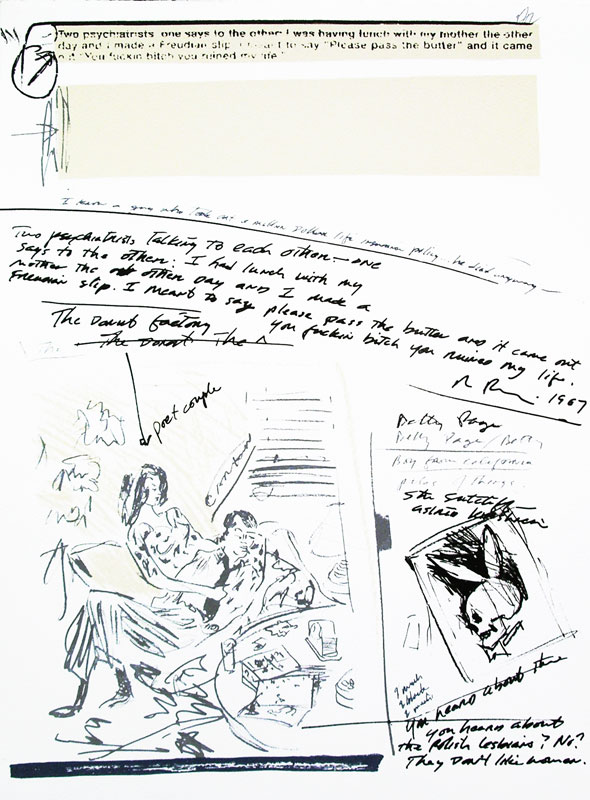 Two psychiatrists, one says to the other: I was having lunch with my mother the other
day and I made a Freudian slip, I meant to say "Please pass the butter" and it came
out "You fuckin bitch you ruined my life."
I know a guy who took out a million dollar life insurance policy. he died anyway —
Two psychiatrists talking to each other — one
says to the other: I had lunch with my
mother the other day and I made a
Freudian slip. I meant to say please pass the butter and it came out
you fuckin bitch you ruined my life.
The Donut factory
The Donut The
1987
poet couple
Betty Page
Betty Page / Betty
Boy from california
You heard about the
you heard about
the Polish lesbians? No?
They Don't like women.